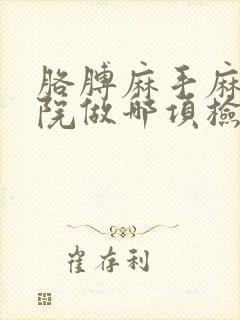 胳膊麻手麻
院做哪项检
崔存利